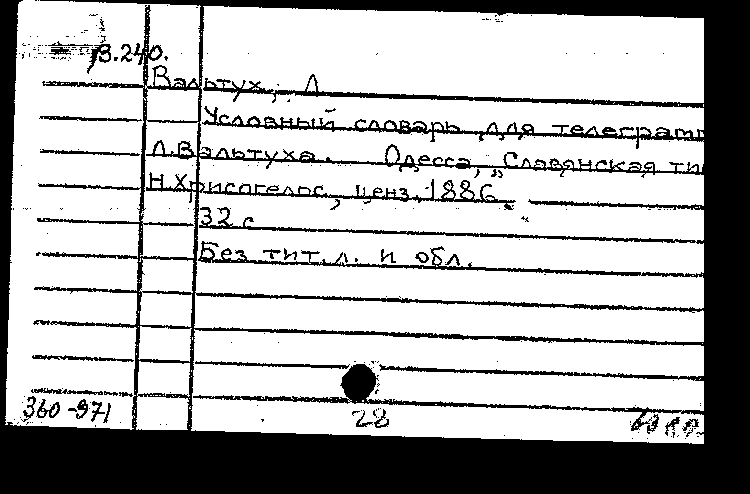 В.240.
Вальтух, Л
Условный словарь для телеграмм
Л.Вальтуха. Одесса, „Славянская ти
Н.Хрисогелос, ценз. 1886.
32 с
Без тит. л. и обл.
360-971
28